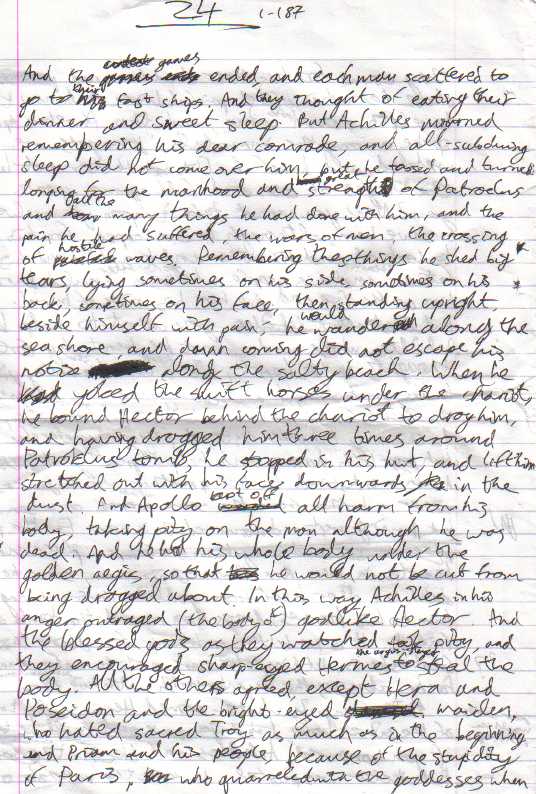 24 1-187
And the games ended, and each man scattered to
go to their fast ships. And they thought of eating their
dinner and sweet sleep. But Achilles mourned
remembering his dear comrade and all-subduing
sleep did not come over him, but he tossed and turned
longing for the manhood and great strength of Patroclus
and all the many things he had done with him, and the
pain he had suffered, the wars of men, the crossing
of hostile waves. Remembering these things he shed big
tears, lying sometimes on his side, sometimes on his
back, sometimes on his face, then standing upright,
beside himself with pain, he would wander along the
sea shore, and dawn coming did not escape his
notice along the salty beach. When he
yoked the swift horses under the chariot,
he bound Hector behind the chariot to drag him,
and having dragged him three times around
Patroklus tomb, he stopped in his hut, and left him
stretched out with his face downwards in the
dust. And Apollo kept off all harm from his
body, taking pity on the man although he was
dead. And he hid his whole body under the
golden aegis, so that he would not be cut from
being dragged about. In this way Achilles in his
anger outraged (the body of) godlike Hector. And
the blessed gods as they watched took pity, and
they encouraged sharp-eyed Hermes the argus-slayer to steal the
body. All the others agreed, except Hera and
Poseidon and the bright-eyed maiden,
who hated sacred Troy as much as in the beginning
and Priam and his people because of the stupidity
of Paris, who quarreled with the goddesses when